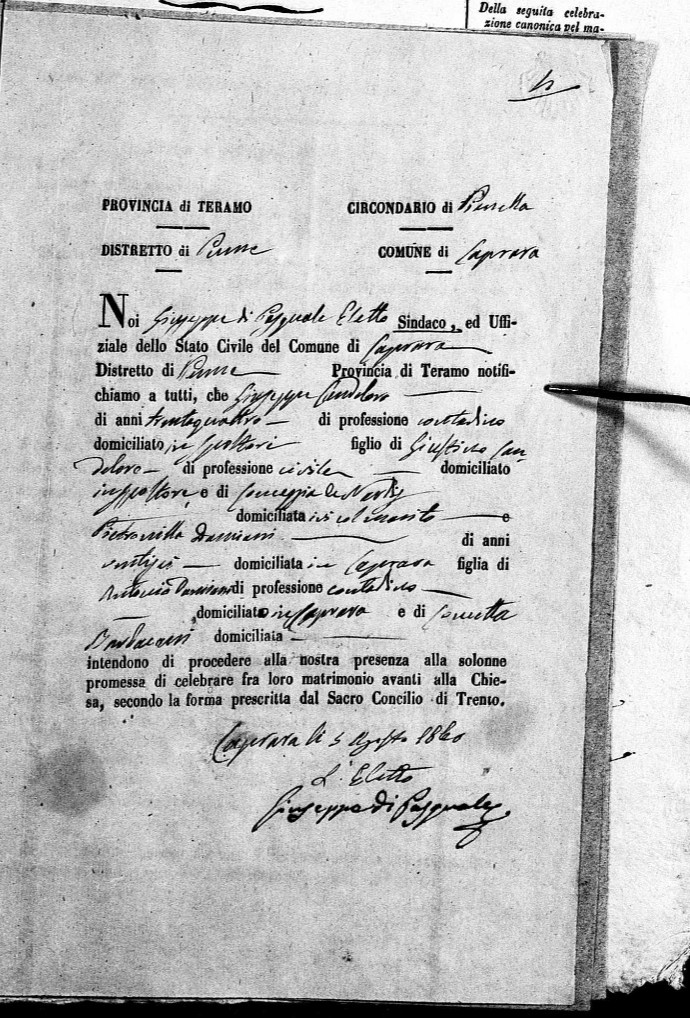 Della seguita celebra-
zione canonica del ma-
PROVINCIA di TERAMO
CIRCONDARIO di Pianella
DISTRETTO di Penne
COMUNE di Caprara
Noi Giuseppe di Pasquale Eletto Sindaco, ed Uffi-
ziale dello Stato Civile del Comune di Caprara
Distretto di Penne Provincia di Teramo notifi-
chiamo a tutti, che Giuseppe Candeloro
di anni trentaquattro di professione contadino
domiciliato in Spoltore figlio di Giustino Can
deloro di professione civile domiciliato
in Spoltore e di Concezia de
domiciliata ivi col marito e
Pietronilla Damiani di anni
ventisei domiciliata in Caprara figlia di
Antonio Damiani di professione contadino
domiciliato in Caprara e di
domiciliata
intendono di procedere alla nostra presenza alla solonne
promessa di celebrare fra loro matrimonio avanti alla Chie-
sa, secondo la forma prescritta dal Sacro Concilio di Trento.
Caprara li 5 Agosto 1860
L'Eletto
Giuseppe di Pasquale